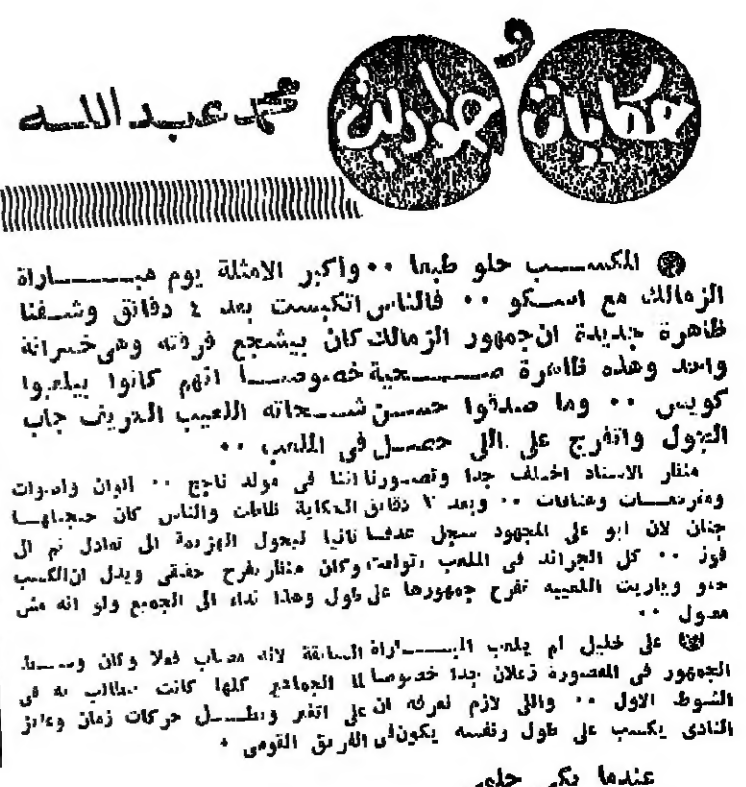 حكايات و حواديت
محمد عبد الله
المكسب حلو طبعا .. واكبر الامثلة يوم مباراة
الزمالك مع اسكو .. فالناس اتكبست بعد ٤ دقائق وشفنا
ظاهرة جديدة ان جمهور الزمالك كان بيشجع فرقته وهى خسرانة
واحد وهذه ظاهرة صحية خصوصا انهم كانوا بيلعبوا
كويس .. وما صدقوا حسن شحاته اللعيب الحريف جاب
الجول واتفرج على اللى حصل فى الملعب ..
منظر الاستاد اختلف جدا وتصورنا اننا فى مولد ناجح .. الوان واصوات
وهتافات .. وبعد ٧ دقائق الحكاية والناس كان
جنان لان ابو على المجهود سجل هدفا ثانيا ليحول الهزيمة الى تعادل ثم الى
فوز .. كل الجرائد فى الملعب وكان منظر يفرح حقيقى ويدل ان الكسب
حلو وياريت اللعيبه تفرح جمهورها على طول وهذا نداء الى الجميع ولو انه مش
معقول ..
على خليل لم يلعب المباراة السابقة لانه مصاب فعلا وكان وسط
الجمهور فى المقصورة زعلان جدا خصوصا لما الجماهير كلها كانت بتطالب به فى
الشوط الاول .. واللى لازم نعرفه ان على اتغير وبطل حركات زمان وعايز
النادى يكسب على طول ونفسه يكون فى الفريق القومى .
عندما يكى